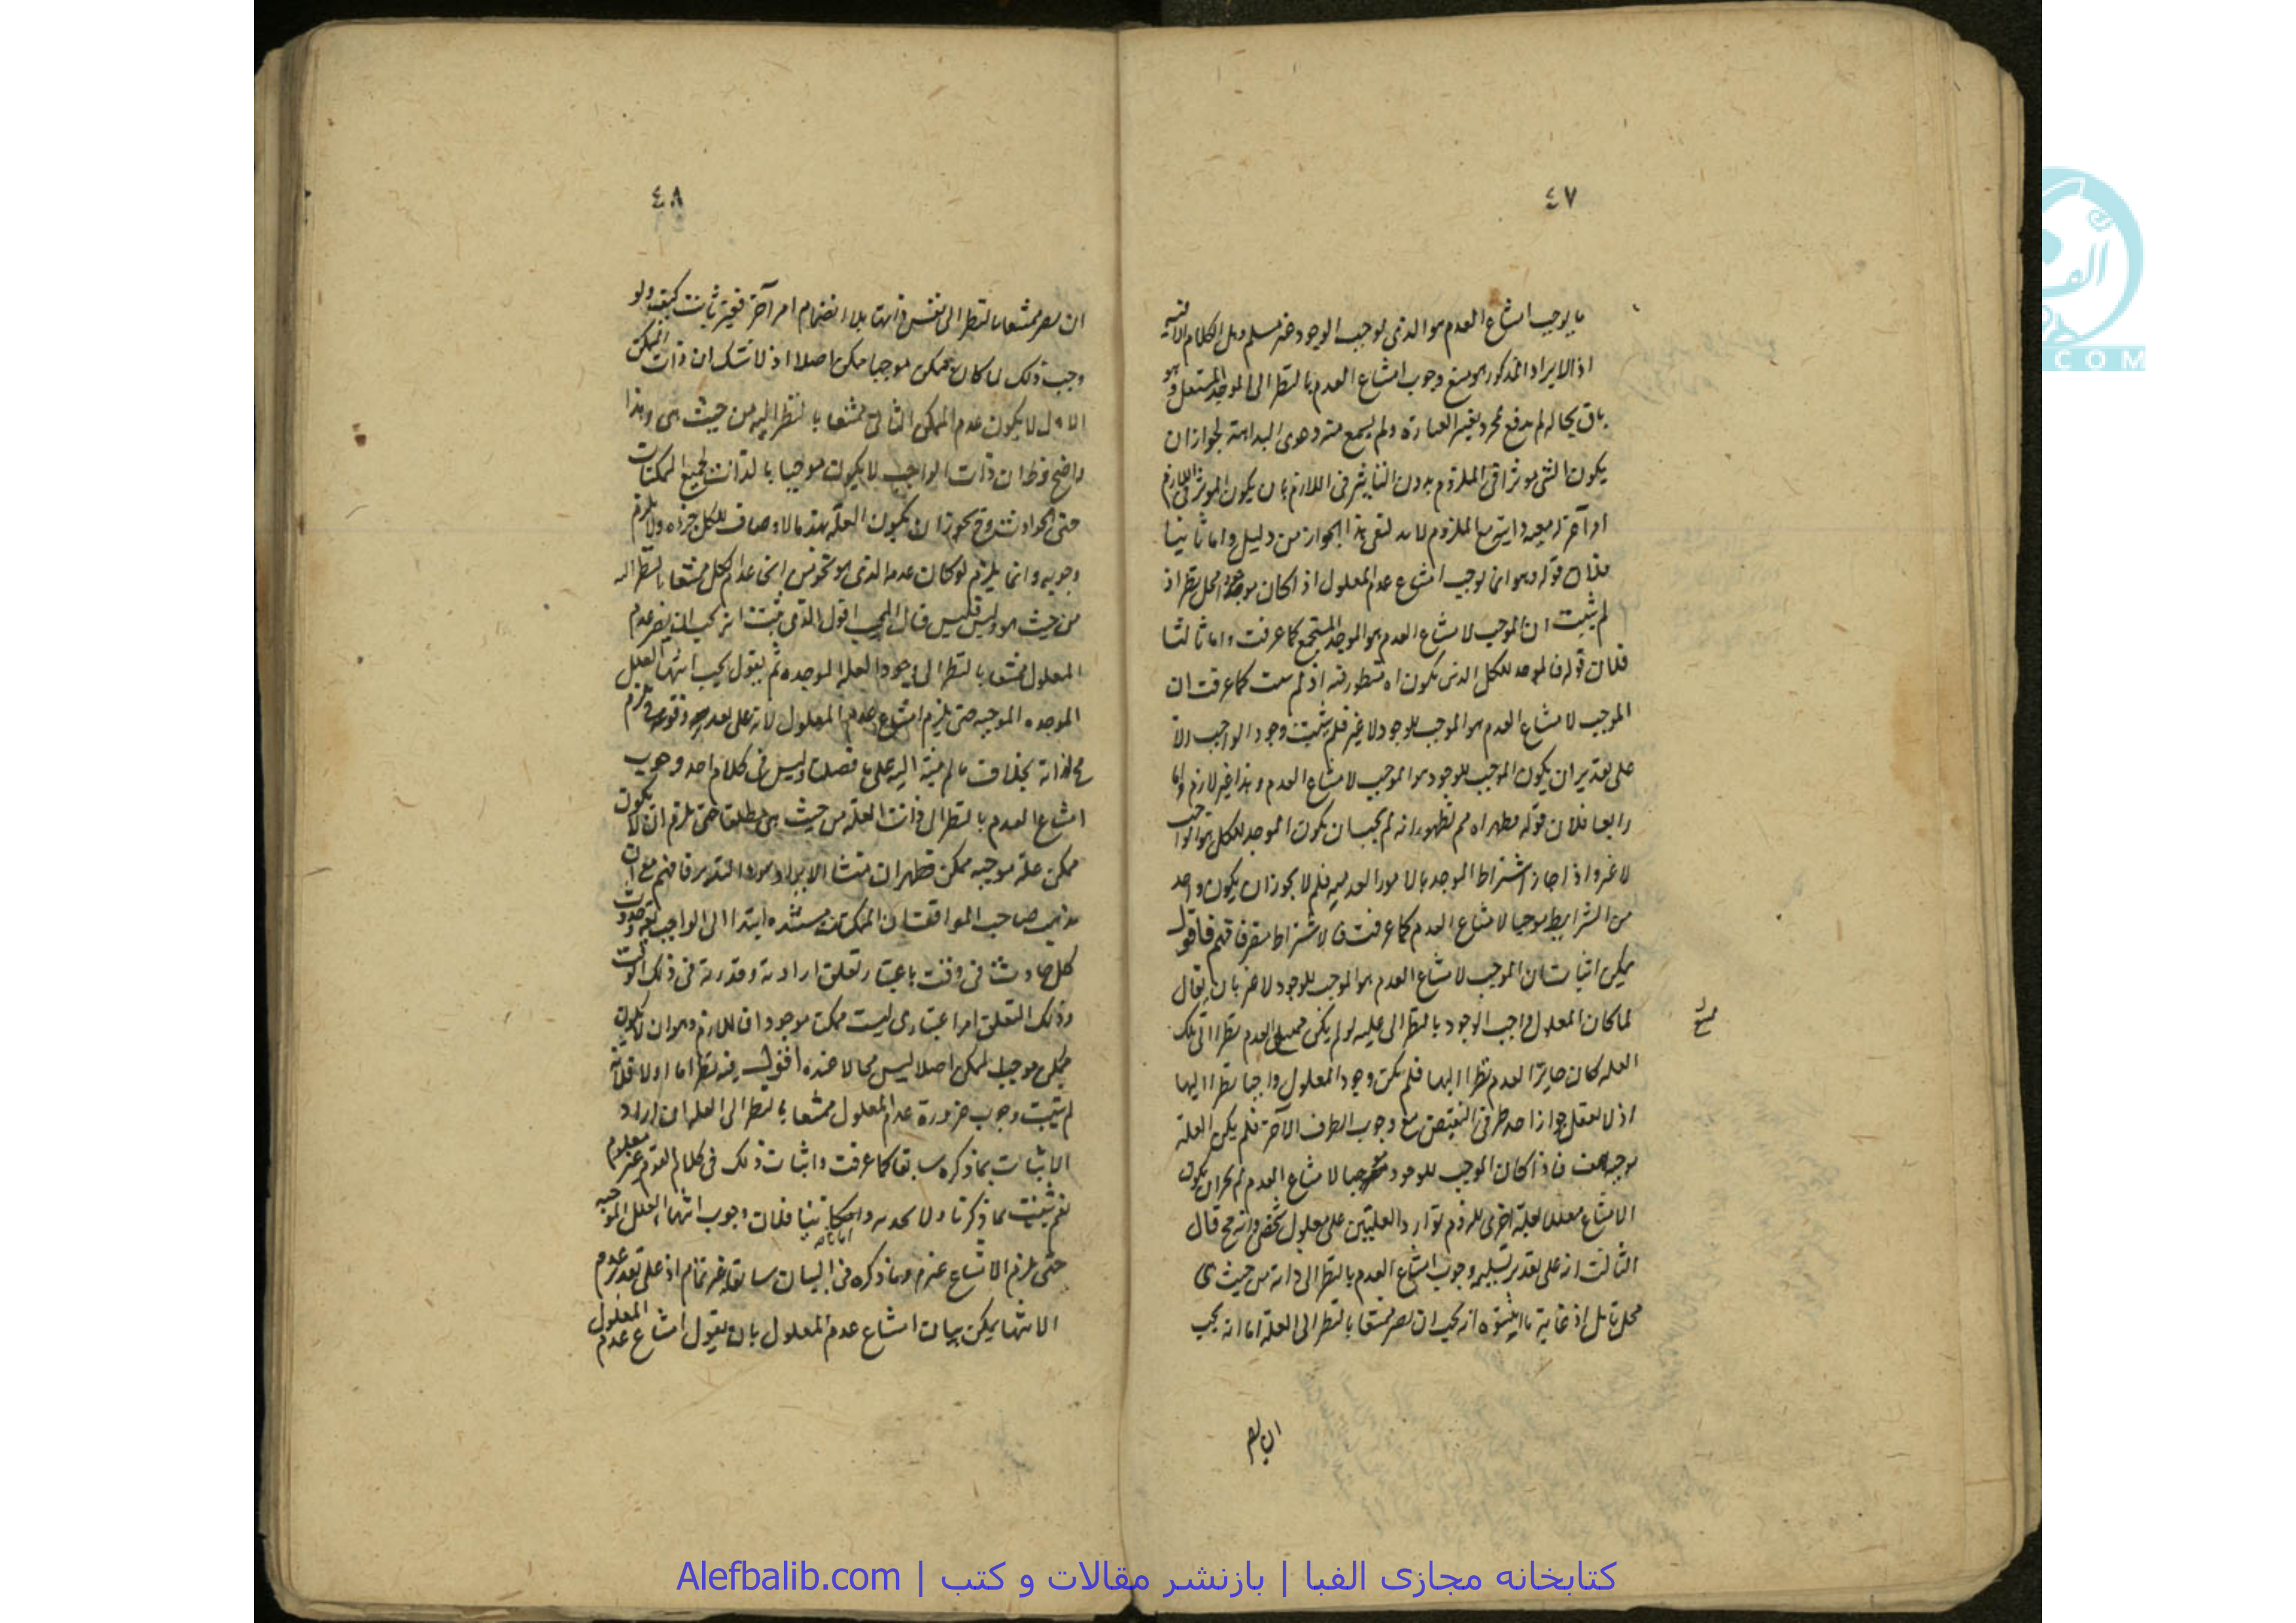 ٤٧
ما يوجب امتناع العدم هو الذى يوجب الوجود غير مسلم وهل الكلام الا فيه
اذ الايراد المذكور هو منع وجوب امتناع العدم بالنظر الى الموجد المستقل وهو
باق بحاله لم يدفع بمجرد تغيير العبارة ولم يسمع منه دعوى البداهة لجواز ان
يكون الشئ موثرا فى الملزوم بدون التاثير فى اللازم بان يكون الموثر فى اللازم
امرا آخر معه الملزوم لابد لنفى هذا الجواز من دليل واما ثانيا
فلان قوله وهو انما يوجب امتناع عدم المعلول اذا كان محل نظر اذ
لم يثبت ان الموجب لامتناع العدم هو الموجد المستجمع كما عرفت واما ثالثا
فلان قوله فالموجد للكل الذى يكون اه منظور فيه اذ لم يثبت كما عرفت ان
الموجب لامتناع العدم هو الموجب للوجود لا غير فلم يثبت وجود الواجب الا
على تقدير ان يكون الموجب للوجود هو الموجب لامتناع العدم وهذا غير لازم واما
رابعا فلان قوله فظهر اه مم لظهور انه لم يجب ان يكون الموجد للكل هو الواجب
لا غير واذا جاز اشتراط الموجد بالامور العدمية فلم لا يجوز ان يكون واحد
من الشرايط موجبا لامتناع العدم كما عرفت فالاشتراط مضر فافهم فاقول
يمكن اثبات ان الموجب لامتناع العدم هو الموجب للوجود لا غير بان يقال
لما كان المعلول واجب الوجود بالنظر الى علته لو لم يكن ممتنع العدم نظرا الى تلك
العلة كان جايز العدم نظرا اليها فلم يكن وجود المعلول واجبا نظرا اليها
اذ لا يعقل جواز احد طرفى النقيض مع وجوب الطرف الآخر فلم يكن العلة
موجبة هف فاذا كان الموجب للوجود موجبا لامتناع العدم لم يجز ان يكون
الامتناع معللا بعلة اخرى للزوم توارد العلتين على معلول شخصى وانه مح قال
الثالث انه على تقدير تسليم وجوب امتناع العدم بالنظر الى ذاته من حيث هى
محل تامل اذ غاية ما انه يجب ان يصير ممتنعا بالنظر الى العلة اما انه يجب
ان يصير
٤٨
ان يصير ممتنعا بالنظر الى نفس ذاتها بلا انضمام امر آخر فغير ثابت كيف ولو
وجب ذلك لما كان ممكن موجبا لممكن اصلا اذ لا شك ان ذات الممكن
الاول لا يكون عدم الممكن الثانى ممتنعا بالنظر اليه من حيث هى وهذا
واضح ان ذات الواجب لا يكون موجبا بالذات لجميع الممكنات
حتى الحوادث يجوز ان يكون العلة بهذه الاوصاف للكل جزءه ولا يلزم
وجوبه وانما يلزم لو كان عدمه الذى هو نحو من انحاء عدم الكل ممتنعا بالنظر اليه
من حيث هو وليس فليس قال المجيب اقول الذى يثبت انه يجب ان يصير عدم
المعلول ممتنعا بالنظر الى وجود العلة الموجدة ثم يقول يجب انتهاء العلل
الموجدة الموجبة حتى يلزم امتناع عدم المعلول لانه على تقدير
بخلاف ما لم ينته اليه على ما فصلت وليس فى كلام احد وجوب
امتناع العدم بالنظر الى ذات العلة من حيث هى مطلقا حتى يلزم ان لا يكون
ممكن علة موجبة لممكن فظهر ان منشا الايراد سوء التدبر فافهم مع ان
مذهب صاحب المواقف ان الممكنات مستندة ابتدا الى الواجب
كل حادث فى وقت باعتبار تعلق ارادته وقدرته فى ذلك الوقت
وذلك التعلق امر اعتبارى ليست ممكنا موجودا فاللازم وهو ان لا يكون
ممكن موجبا لممكن اصلا ليس محالا عنده اقول فيه نظر اما اولا فلانه
لم يثبت وجوب ضرورة عدم المعلول ممتنعا بالنظر الى العلة ان اراد
الاثبات بما ذكره سابقا كما عرفت واثبات ذلك فى كلام القوم غير معلوم
نعم يثبت بما ذكرنا ولا واما ثانيا فلان وجوب انتهاء العلل الموجبة
حتى يلزم الامتناع غير لازم وما ذكره فى البيان سابقا غير تمام اذ على تقدير عدم
الانتها يمكن بيان امتناع عدم المعلول بان يقول امتناع عدم المعلول
کتابخانه مجازی الفبا | بازنشر مقالات و کتب | Alefbalib.com